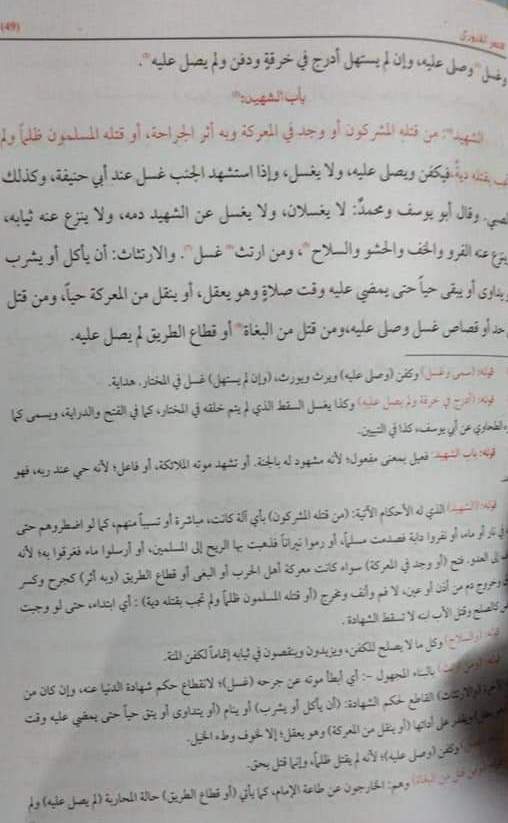 (49)
وغسل وصلى عليه، وإن لم يستهل أدرج في خرقة ودفن ولم يصل عليه.
باب الشهيد:
الشهيد: من قتله المشركون أو وجد في المعركة وبه أثر الجراحة، أو قتله المسلمون ظلماً ولم
بقتله دية، فيكفن ويصلى عليه، ولا يغسل، وإذا استشهد الجنب غسل عند أبي حنيفة، وكذلك
الصبي. وقال أبو يوسف ومحمد: لا يغسلان، ولا يغسل عن الشهيد دمه، ولا ينزع عنه ثيابه،
وينزع عنه الفرو والخف والحشو والسلاح، ومن ارتث غسل. والارتثاث: أن يأكل أو يشرب
أو يداوى أو يبقى حياً حتى يمضي عليه وقت صلاة وهو يعقل، أو ينقل من المعركة حياً، ومن قتل
حد أو قصاص غسل وصلى عليه، ومن قتل من البغاة أو قطاع الطريق لم يصل عليه.
قوله: (سمى وغسل) وكفن (وصلى عليه) ويرث ويورث، (وإن لم يستهل) غسل في المختار. هداية.
قوله: (أدرج في خرقة ولم يصل عليه) وكذا يغسل السقط الذي لم يتم خلقه في المختار، كما في الفتح والدراية، ويسمى كما
الطحاوي عن أبي يوسف، كذا في التبيين.
قوله: باب الشهيد: فعيل بمعنى مفعول؛ لأنه مشهود له بالجنة. أو تشهد موته الملائكة، أو فاعل؛ لأنه حي عند ربه، فهو
قوله: (الشهيد) الذي له الأحكام الآتية: (من قتله المشركون) بأي آلة كانت، مباشرة أو تسبباً منهم، كما لو اضطروهم حتى
في نار أو ماء، أو نفروا دابة فصدمت مسلماً، أو رموا نيراناً فذهبت بها الريح إلى المسلمين، أو أرسلوا ماء فغرقوا به؛ لأنه
إلى العدو. فتح (أو وجد في المعركة) سواء كانت معركة أهل الحرب أو البغي أو قطاع الطريق (وبه أثر) كجرح وكسر
وخروج دم من أذن أو عين، لا فم وأنف ومخرج (أو قتله المسلمون ظلماً ولم تجب بقتله دية): أي ابتداء، حتى لو وجبت
كالصلح وقتل الأب ابنه لا تسقط الشهادة.
قوله: (والسلاح) وكل ما لا يصلح للكفن، ويزيدون وينقصون في ثيابه إتماماً لكفن السنة.
قوله: بالبناء للمجهول -: أي أبطأ موته عن جرحه (غسل)؛ لانقطاع حكم شهادة الدنيا عنه، وإن كان من
(والارتثاث) القاطع لحكم الشهادة: (أن يأكل أو يشرب) أو ينام (أو يتداوى أو يبقى حياً حتى يمضي عليه وقت
ويقدر على أدائها (أو ينقل من المعركة) وهو يعقل؛ إلا لخوف وطء الخيل.
وكفن (وصلى عليه)؛ لأنه لم يقتل ظلماً، وإنما قتل بحق.
من البغاة) وهم: الخارجون عن طاعة الإمام، كما يأتي (أو قطاع الطريق) حالة المحاربة (لم يصل عليه) ولم